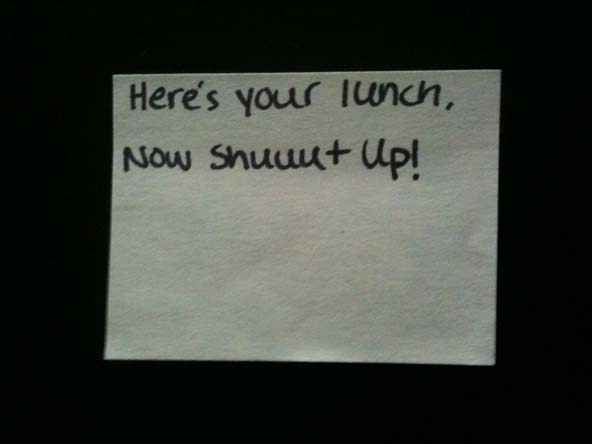 Here's your lunch,
Now shuuut up!